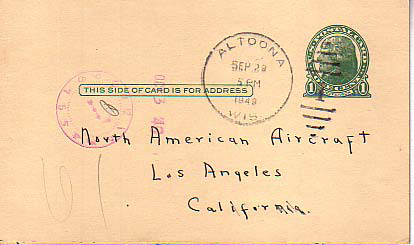 ALTOONA
SEP 28
5 PM
1949
WIS.
THIS SIDE OF CARD IS FOR ADDRESS
1 1
North American Aircraft
Los Angeles
California.